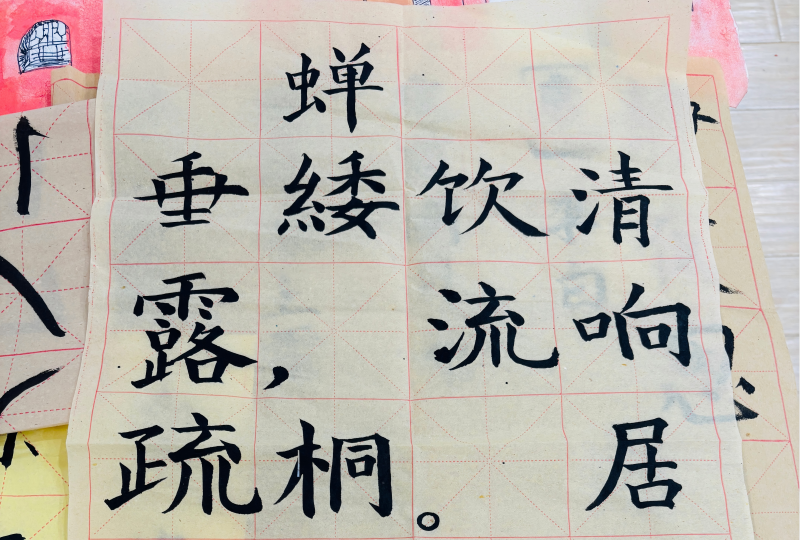 蝉
垂緌饮清
露，流响
疏桐。居